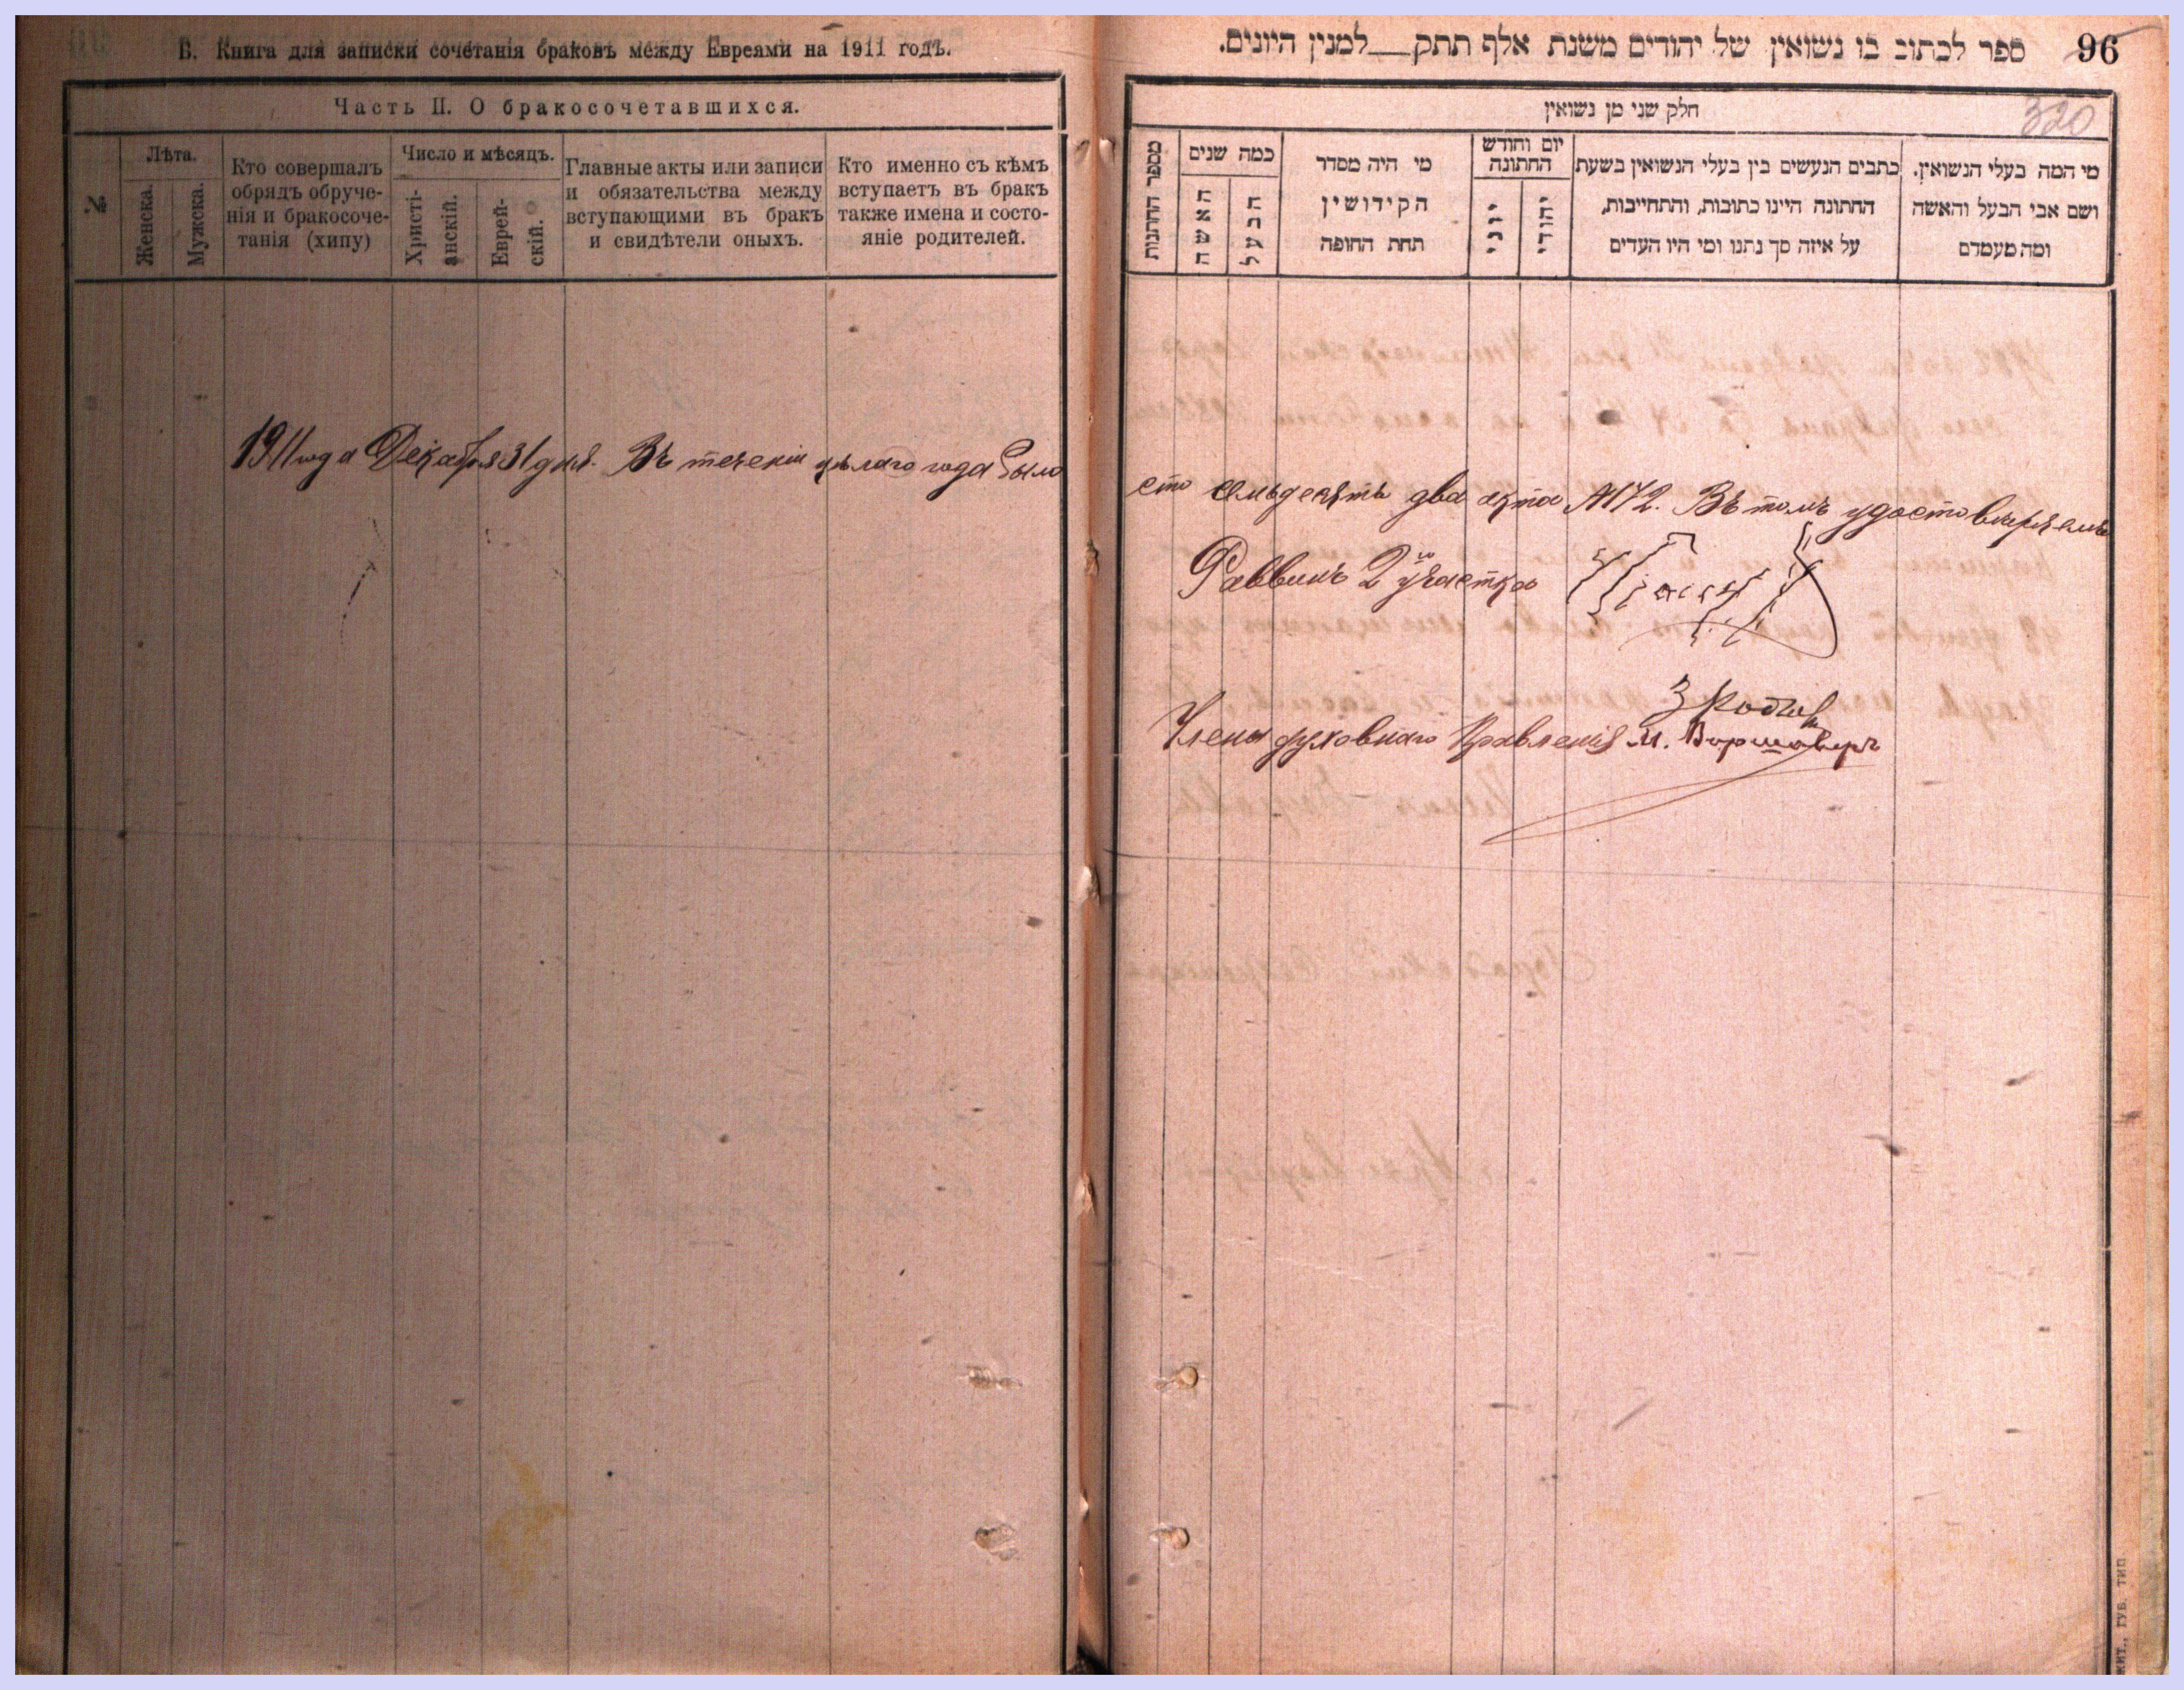 Б. Книга для записки сочетанія браковъ между Евреями на 1911 годъ.
Часть II. О бракосочетавшихся.
№
Лѣта.
Женска.
Мужска.
Кто совершалъ
обрядъ обруче-
нія и бракосоче-
танія (хипу)
Число и мѣсяцъ.
Христі-
анскій.
Еврей-
скій.
Главные акты или записи
и обязательства между
вступающими въ бракъ
и свидѣтели оныхъ.
Кто именно съ кѣмъ
вступаетъ въ бракъ
также имена и состо-
яніе родителей.
1911 года Декабря 31 дня. Въ теченіи цѣлаго года было
ספר לכתוב בו נשואין של יהודים משנת אלף תתק__למנין היונים. 96
320
חלק שני מן נשואין
מספר החתונות
כמה שנים
האשה
הבעל
מי היה מסדר
הקידושין
תחת החופה
יום וחודש
החתונה
יוני
יהודי
כתבים הנעשים בין בעלי הנשואין בשעת
החתונה היינו כתובות, והתחייבות,
על איזה סך נתנו ומי היו העדים
מי המה בעלי הנשואין.
ושם אבי הבעל והאשה
ומה מעמדם
сто семьдесятъ два акта №172. Въ томъ удостовѣряемъ
Раввинъ 2го участка
Члены духовнаго Правленія М. Варшаверъ
ЖИТ., ГУБ. ТИП.